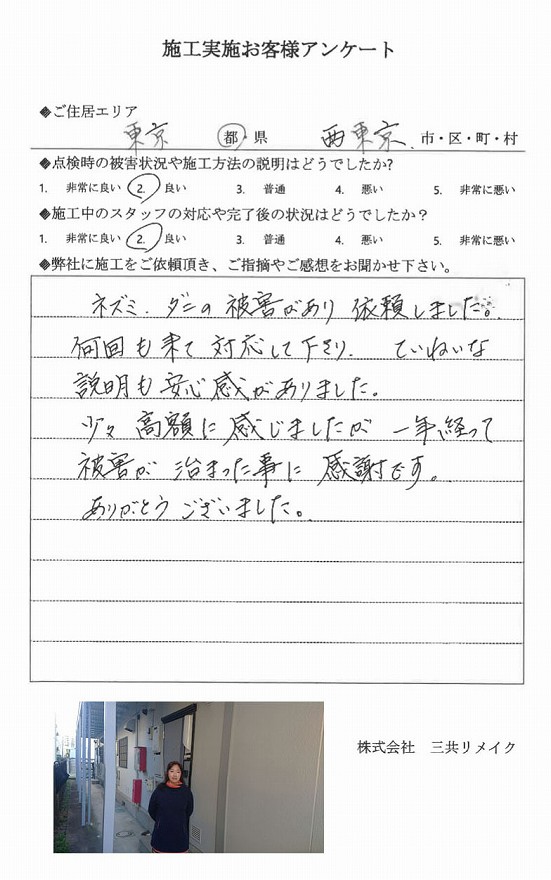 施工実施お客様アンケート
◆ご住居エリア
東京 都・県 西東京 市・区・町・村
◆点検時の被害状況や施工方法の説明はどうでしたか?
1. 非常に良い 2. 良い 3. 普通 4. 悪い 5. 非常に悪い
◆施工中のスタッフの対応や完了後の状況はどうでしたか？
1. 非常に良い 2. 良い 3. 普通 4. 悪い 5. 非常に悪い
◆弊社に施工をご依頼頂き、ご指摘やご感想をお聞かせ下さい。
ネズミ、ダニの被害があり 依頼しました。
何回も来て対応して下さり、ていねいな
説明も安心感がありました。
少々高額に感じましたが 一年経って
被害が治まった事に感謝です。
ありがとうございました。
株式会社 三共リメイク